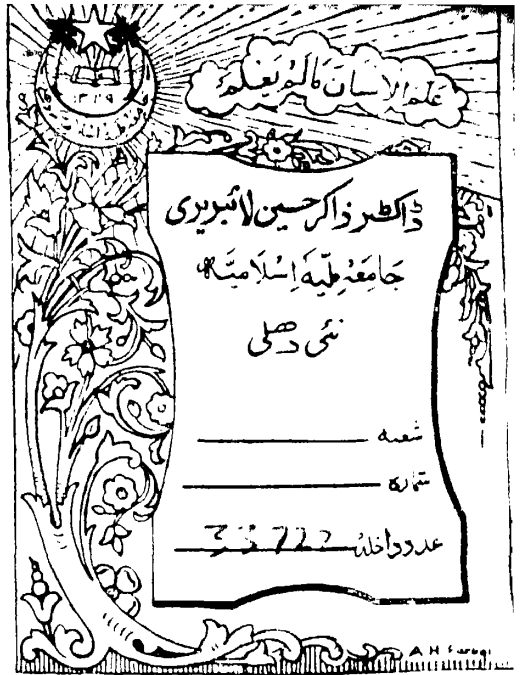 عَلَّمَ الْاِنْسَانَ مَا لَمْ يَعْلَمْ
ڈاکٹر ذاکر حسین لائبریری
جَامِعَہ مِلّیہ اِسْلَامیَّہ
نئی دھلی
شعبہ
شمارہ
عدد داخلہ